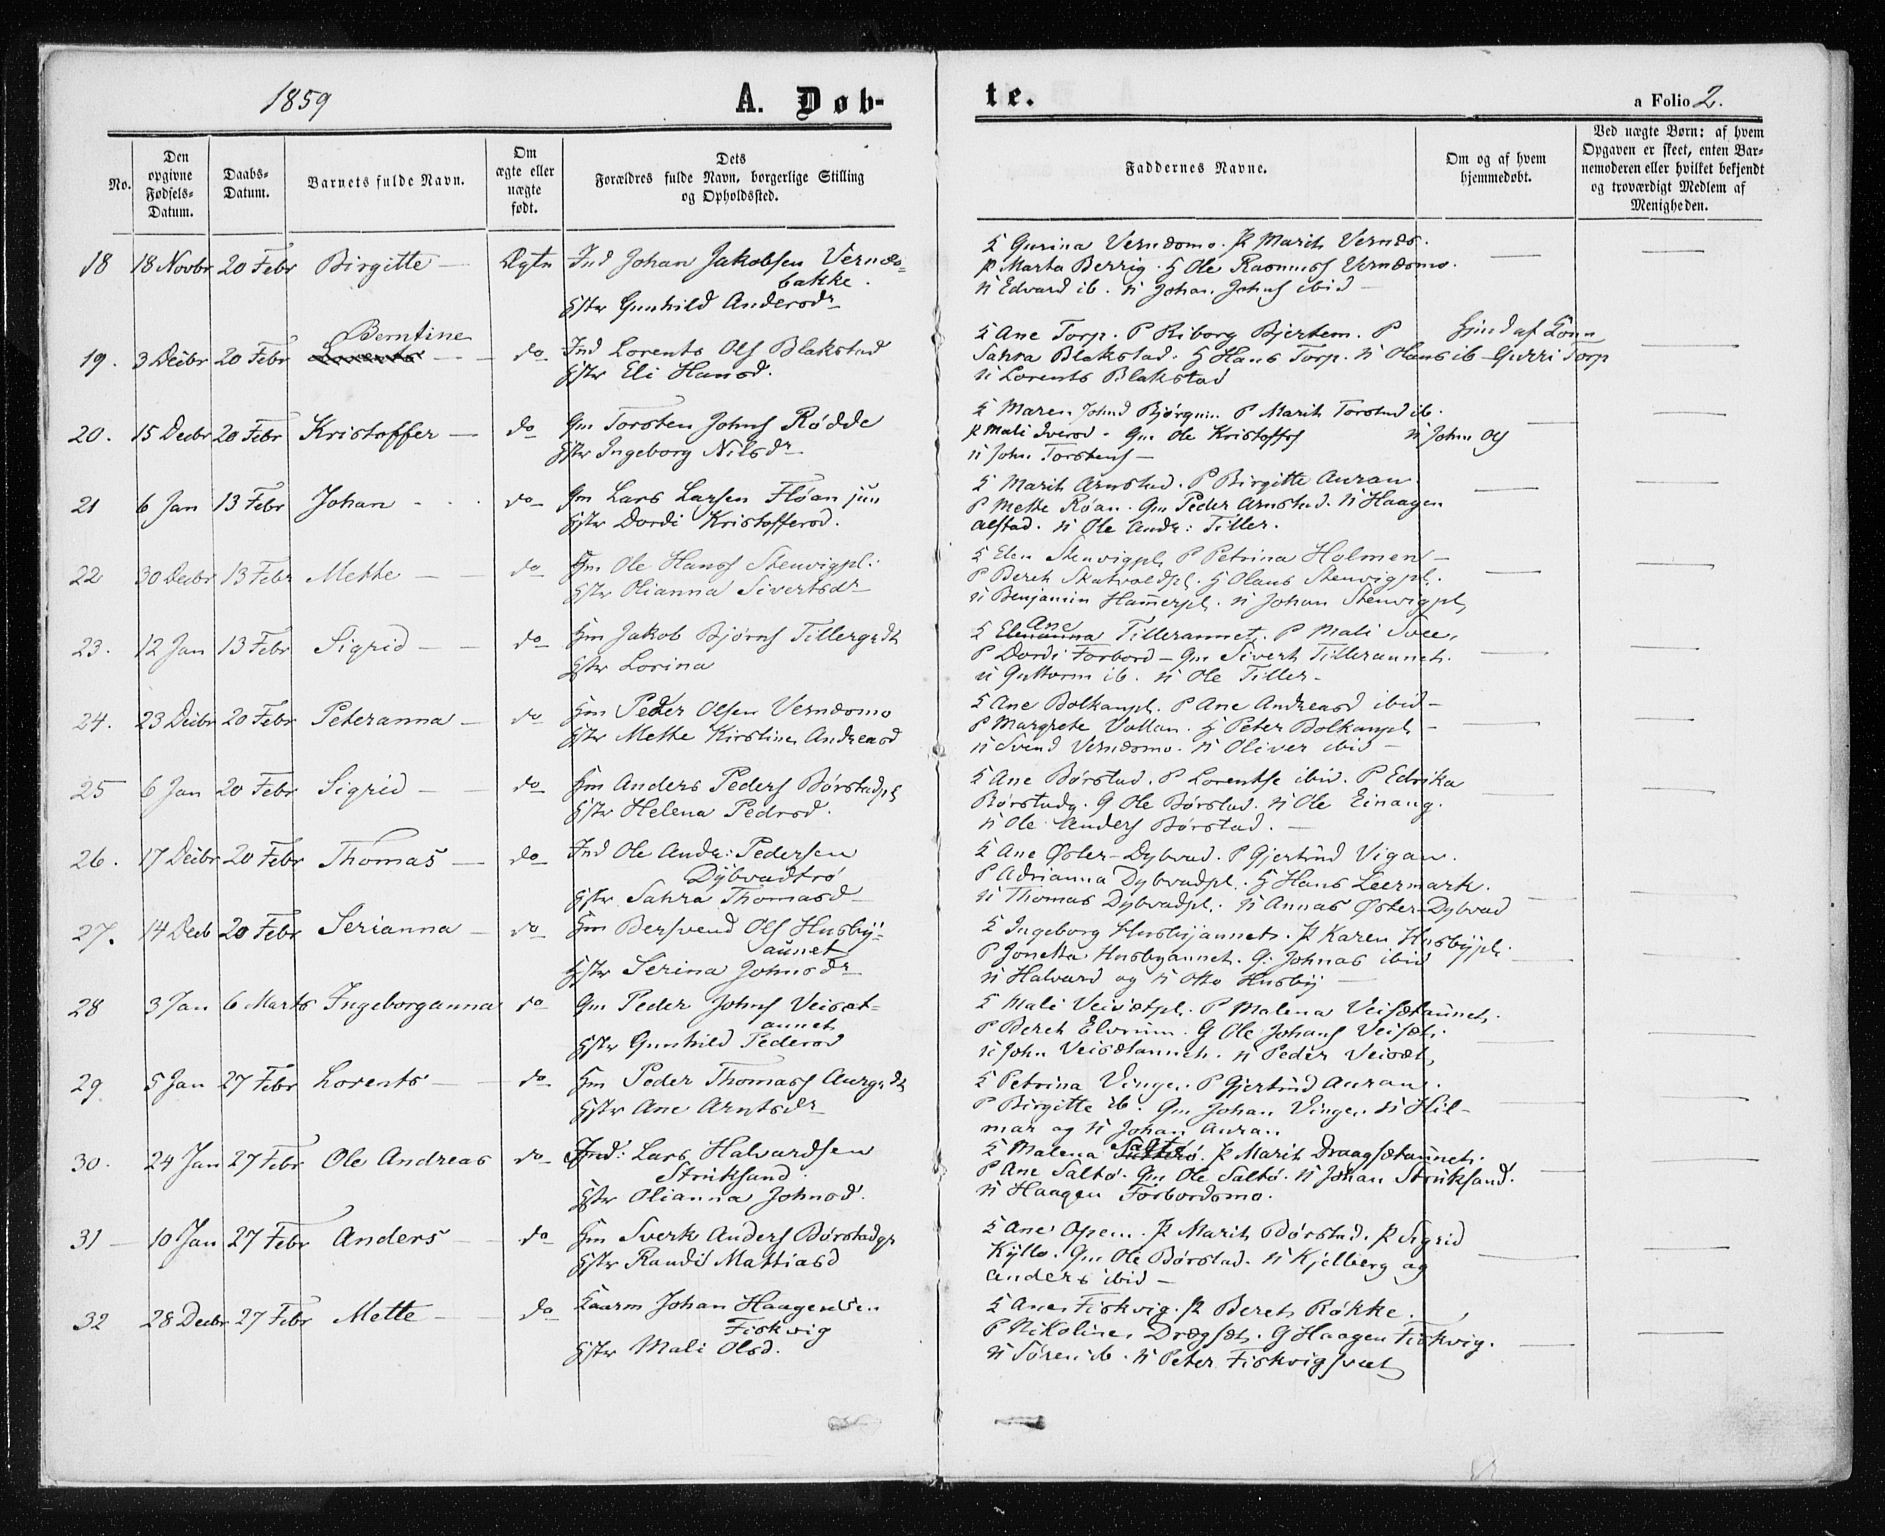 1859
A. Døb-
te.
a Folio 2.
No.
Den opgivne Fødsels-Datum.
Daabs-Datum.
Barnets fulde Navn.
Om ægte eller uægte født.
Dets Forældres fulde Navn, borgerlige Stilling og Opholdssted.
Faddernes Navne.
Om og af hvem hjemmedøbt.
Ved uægte Børn: af hvem Opgaven er skeet, enten Barnemoderen eller hvilket bekjendt og troværdigt Medlem af Menigheden.
18 18 Novbr 20 Febr Birgitte — Ægte Ind Johan Jakobsen Vernæs-
bakke.
Hstr Gunhild Andersdr
K Gurina Vernæsmo. P Marit Vernæs.
P Marta Berrig. G Ole Rasmuss Vernæsmo.
N Edvard ib. N Johan Johns ibid —
Berntine
19. 3 Decbr 20 Febr do Ind Lorents Ols Blakstad
Hstr Eli Hansd.
K Ane Torp. P Riborg Bjertem. P
Sahra Blakstad. G Hans Torp. N Olaus ib
N Lorents Blakstad
Gurri Torp
20. 15 Decbr 20 Febr Kristoffer — do Gm Torsten Johns Rødde
Hstr Ingeborg Nilsdr
K Maren Johnsd P Marit Torstend ib.
P Mali Iversd. Gm Ole Kristoffs N John Ols
N John Torstens —
21 6 Jan 13 Febr Johan — do Gm Lars Larsen Fløan jun
Hstr Dordi Kristoffersd.
K Marit Arnstad. P Birgitte Auran.
P Mette Røan. Gm Peder Arnstad. N Haagen
Alstad. N Ole Andr: Tiller.
22 30 Decbr 13 Febr Mette — do Hm Ole Hanss Stenvigpl.
Hstr Olianna Sivertsdr
K Elen Stenvigpl P Petrina Holmen —
P Beret Skatvoldpl. G Olaus Stenvigpl.
N Benjamin Hamerpl. N Johan Stenvigpl
23. 12 Jan 13 Febr Sigrid — do Hm Jakob Bjørns Tillergrdt
Hstr Lorina
Ane
K Tilleraunet. P Mali Svee.
P Dordi Forbord — Gm Sivert Tilleraunet.
N Guttorm ib. N Ole Tiller —
24. 23 Decbr 20 Febr Peteranna — do Hm Peder Olsen Vernæsmo
Hstr Mette Kirstine Andreasd
K Ane Bolkanpl. P Ane Andreasd ibid —
P Margrete Vollan. G Peter Bolkanpl —
N Svend Vernæsmo. N Oliver ibid —
25 6 Jan 20 Febr Sigrid — do Hm Anders Peders Børstadpl
Hstr Helena Pedersd.
K Ane Børstad. P Lorentse ibid. P Edrika
Børstadg. G Ole Børstad. N Ole Einang.
N Ole Anders Børstad. —
26. 17 Decbr 20 Febr Thomas — do Ind Ole Andr: Pedersen
Dybvadtrø
Hstr Sahra Thomasd
K Ane Øster-Dybvad. P Gjertrud Vigan.
P Adrianna Dybvadpl. G Hans Leermark.
N Thomas Dybvadpl. N Annas Øster-Dybvad
27. 14 Decb 20 Febr Serianna — do Hm Bersvend Ols Husby-
aunet
Hstr Serina Johnsdr
K Ingeborg Husbyaunet. P Karen Husbypl.
P Jonetta Husbyaunet. G: Johnas ibid
N Halvard og N Otto Husby —
28 3 Jan 6 Marts Ingeborganna do Gm Peder Johns Veisæt-
aunet
Hstr Gunhild Pedersd
K Mali Veisætpl. P Malena Veisætaunet.
P Beret Elvrum. G Ole Johans Veisæt.
N John Veisætaunet. N Peder Veisæt
29 5 Jan 27 Febr Lorents — do Hm Peder Thomass Aurgrdt
Hstr Ane Arntsdr
K Petrina Vinge. P Gjertrud Auran.
P Birgitte ib. Gm Johan Vinge. N Hil-
mar og N Johan Auran.
30. 24 Jan 27 Febr Ole Andreas do Ind: Lars Halvardsen
Struksand.
Hstr Olianna Johnsd.
K Malena Saltø. P Marit Draagsætaunet.
P Ane Saltø. Gm Ole Saltø. N Johan Struksand.
N Haagen Forbordsmo.
31 — 10 Jan 27 Febr Anders — do Hm Sverk Anders Børstadpl
Hstr Randi Mattiasd
K Ane Opem. P Marit Børstad. P Sigrid
Kyllo. Gm Ole Børstad. N Kjelberg og
Anders ibid —
32 28 Decbr 27 Febr Mette — do Kaarm Johan Haagensen
Fiskvig
Hstr Mali Olsd.
K Ane Fiskvig. P Beret Røkke.
P Nikoline Drægset. G Haagen Fiskvig.
N Søren ib. N Peter Fiskvigsvet